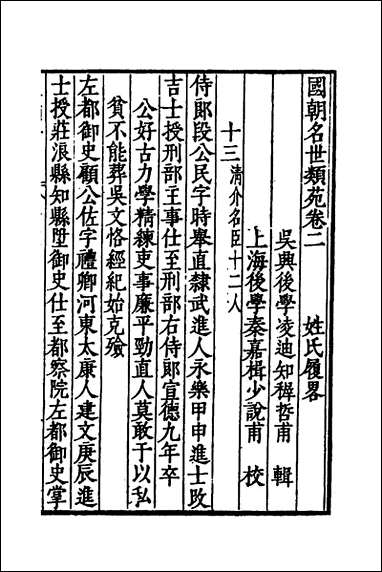 國朝名世類苑卷二　　姓氏履畧
吳興後學凌迪知穉哲甫　輯
上海後學秦嘉楫少說甫　校
十三清介名臣十二人
侍郞段公民字時舉直隸武進人永樂甲申進士攺
吉士授刑部主事仕至刑部右侍郎宣德九年卒
公好古力學精練吏事廉平勁直人莫敢干以私
貧不能葬吳文恪經紀始克殮
左都御史顧公佐字禮卿河東太康人建文庚辰進
士授莊浪縣知縣陞御史仕至都察院左都御史掌